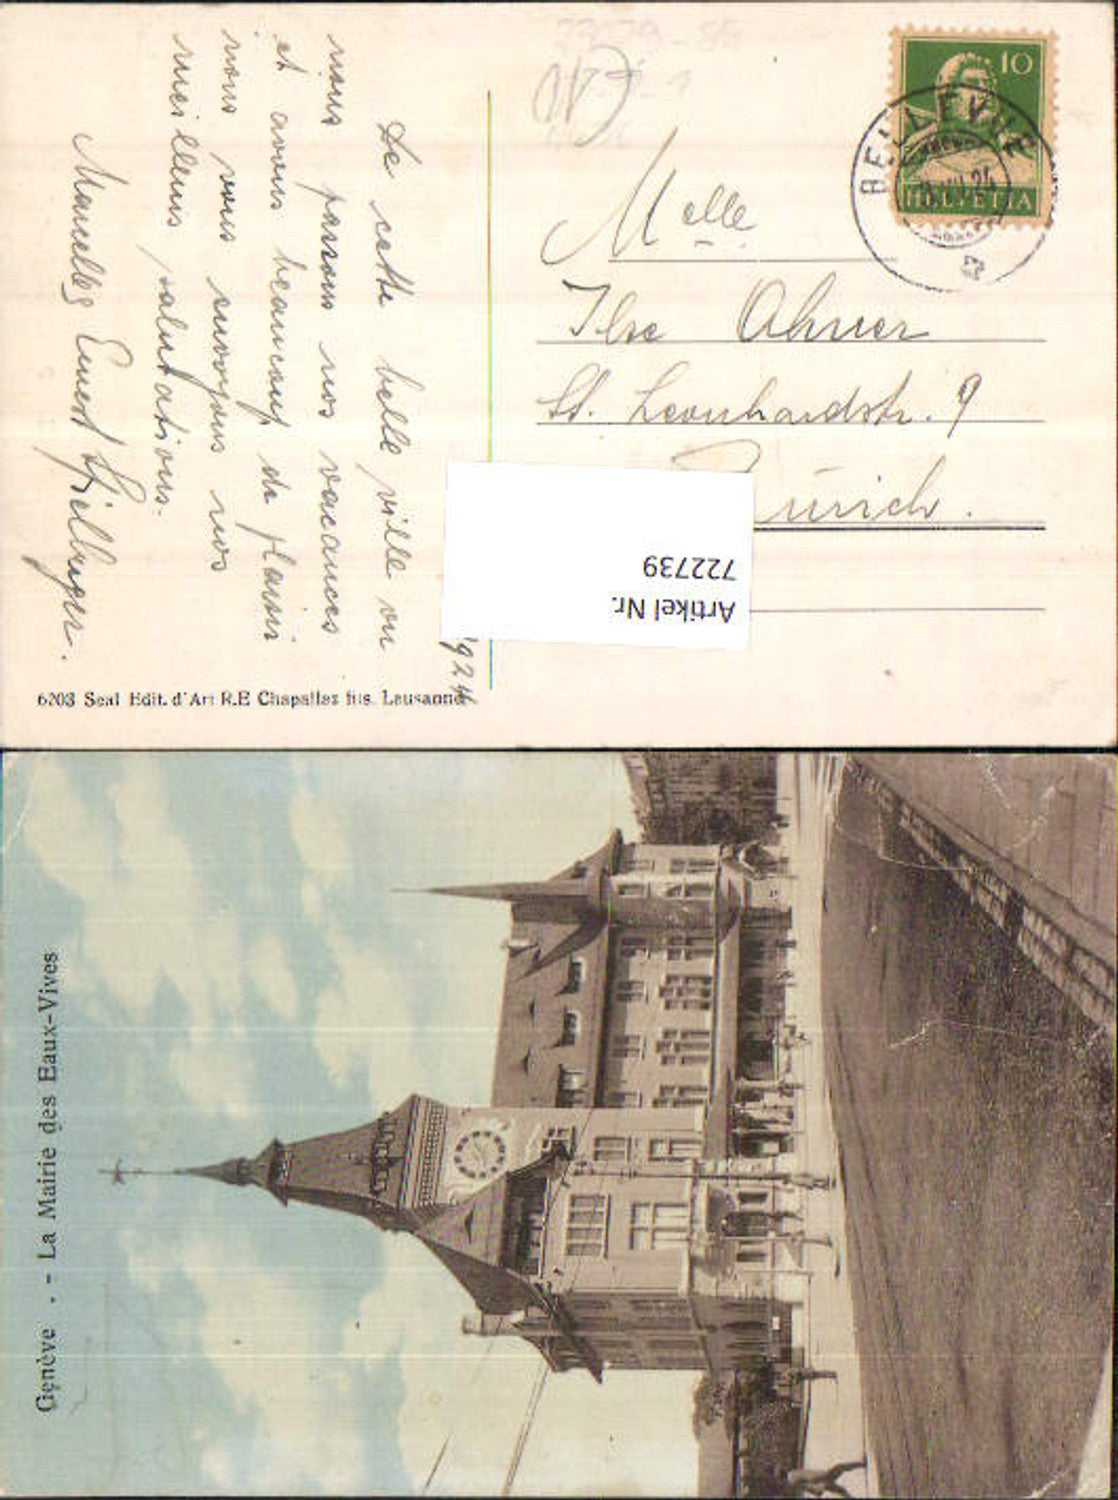 De cette belle ville ou
nous passons nos vacances
et avons beaucoup de plaisir
nous vous envoyons nos
meilleurs salutations.
Marcelle, Ernest
1924
Melle
Ilse Ahner
St. Leonhardstr. 9
Zürich.
10
HELVETIA
BELLEVUE
Artikel Nr.
722739
6203 Seal Edit. d'Art R.E Chapallaz fils. Lausanne
Genève . - La Mairie des Eaux-Vives